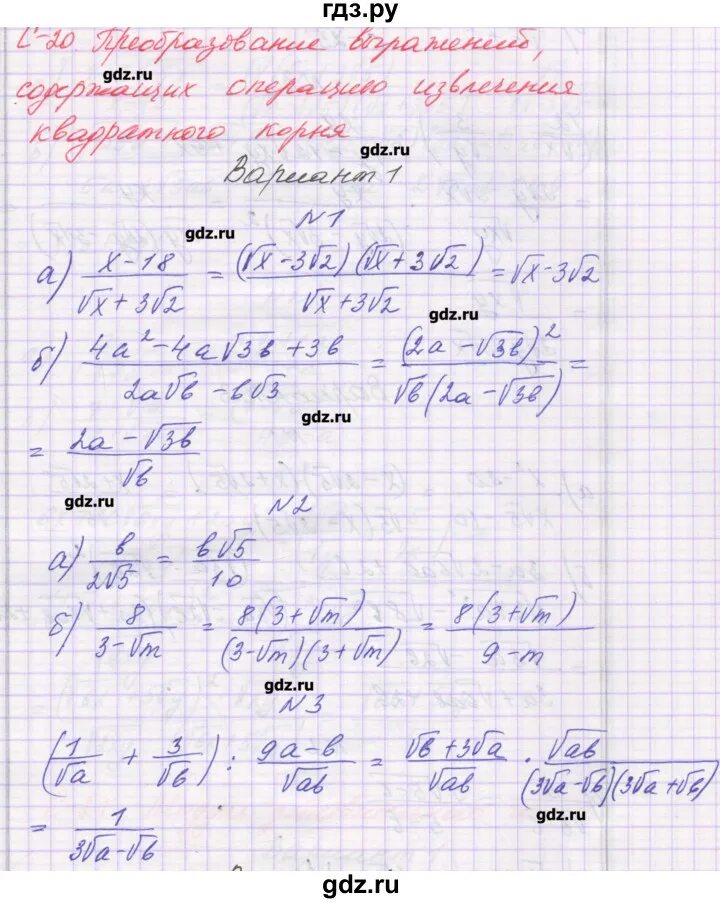 гдз.ру
С-20 Преобразование выражений,
gdz.ru
содержащих операцию извлечения
квадратного корня
gdz.ru
Вариант 1
№1
gdz.ru
а) (x-18)/(√x+3√2) = ((√x-3√2)(√x+3√2))/(√x+3√2) = √x-3√2
gdz.ru
б) (4a²-4a√3b+3b)/(2a√b-b√3) = (2a-√3b)²/(√b(2a-√3b)) =
gdz.ru
= (2a-√3b)/√b
gdz.ru
№2
а) b/(2√5) = b√5/10
gdz.ru
б) 8/(3-√m) = 8(3+√m)/((3-√m)(3+√m)) = 8(3+√m)/(9-m)
gdz.ru
№3
(1/√a + 3/√b) : (9a-b)/√ab = (√b+3√a)/√ab · √ab/((3√a-√b)(3√a+√b))
gdz.ru
= 1/(3√a-√b)
gdz.ru